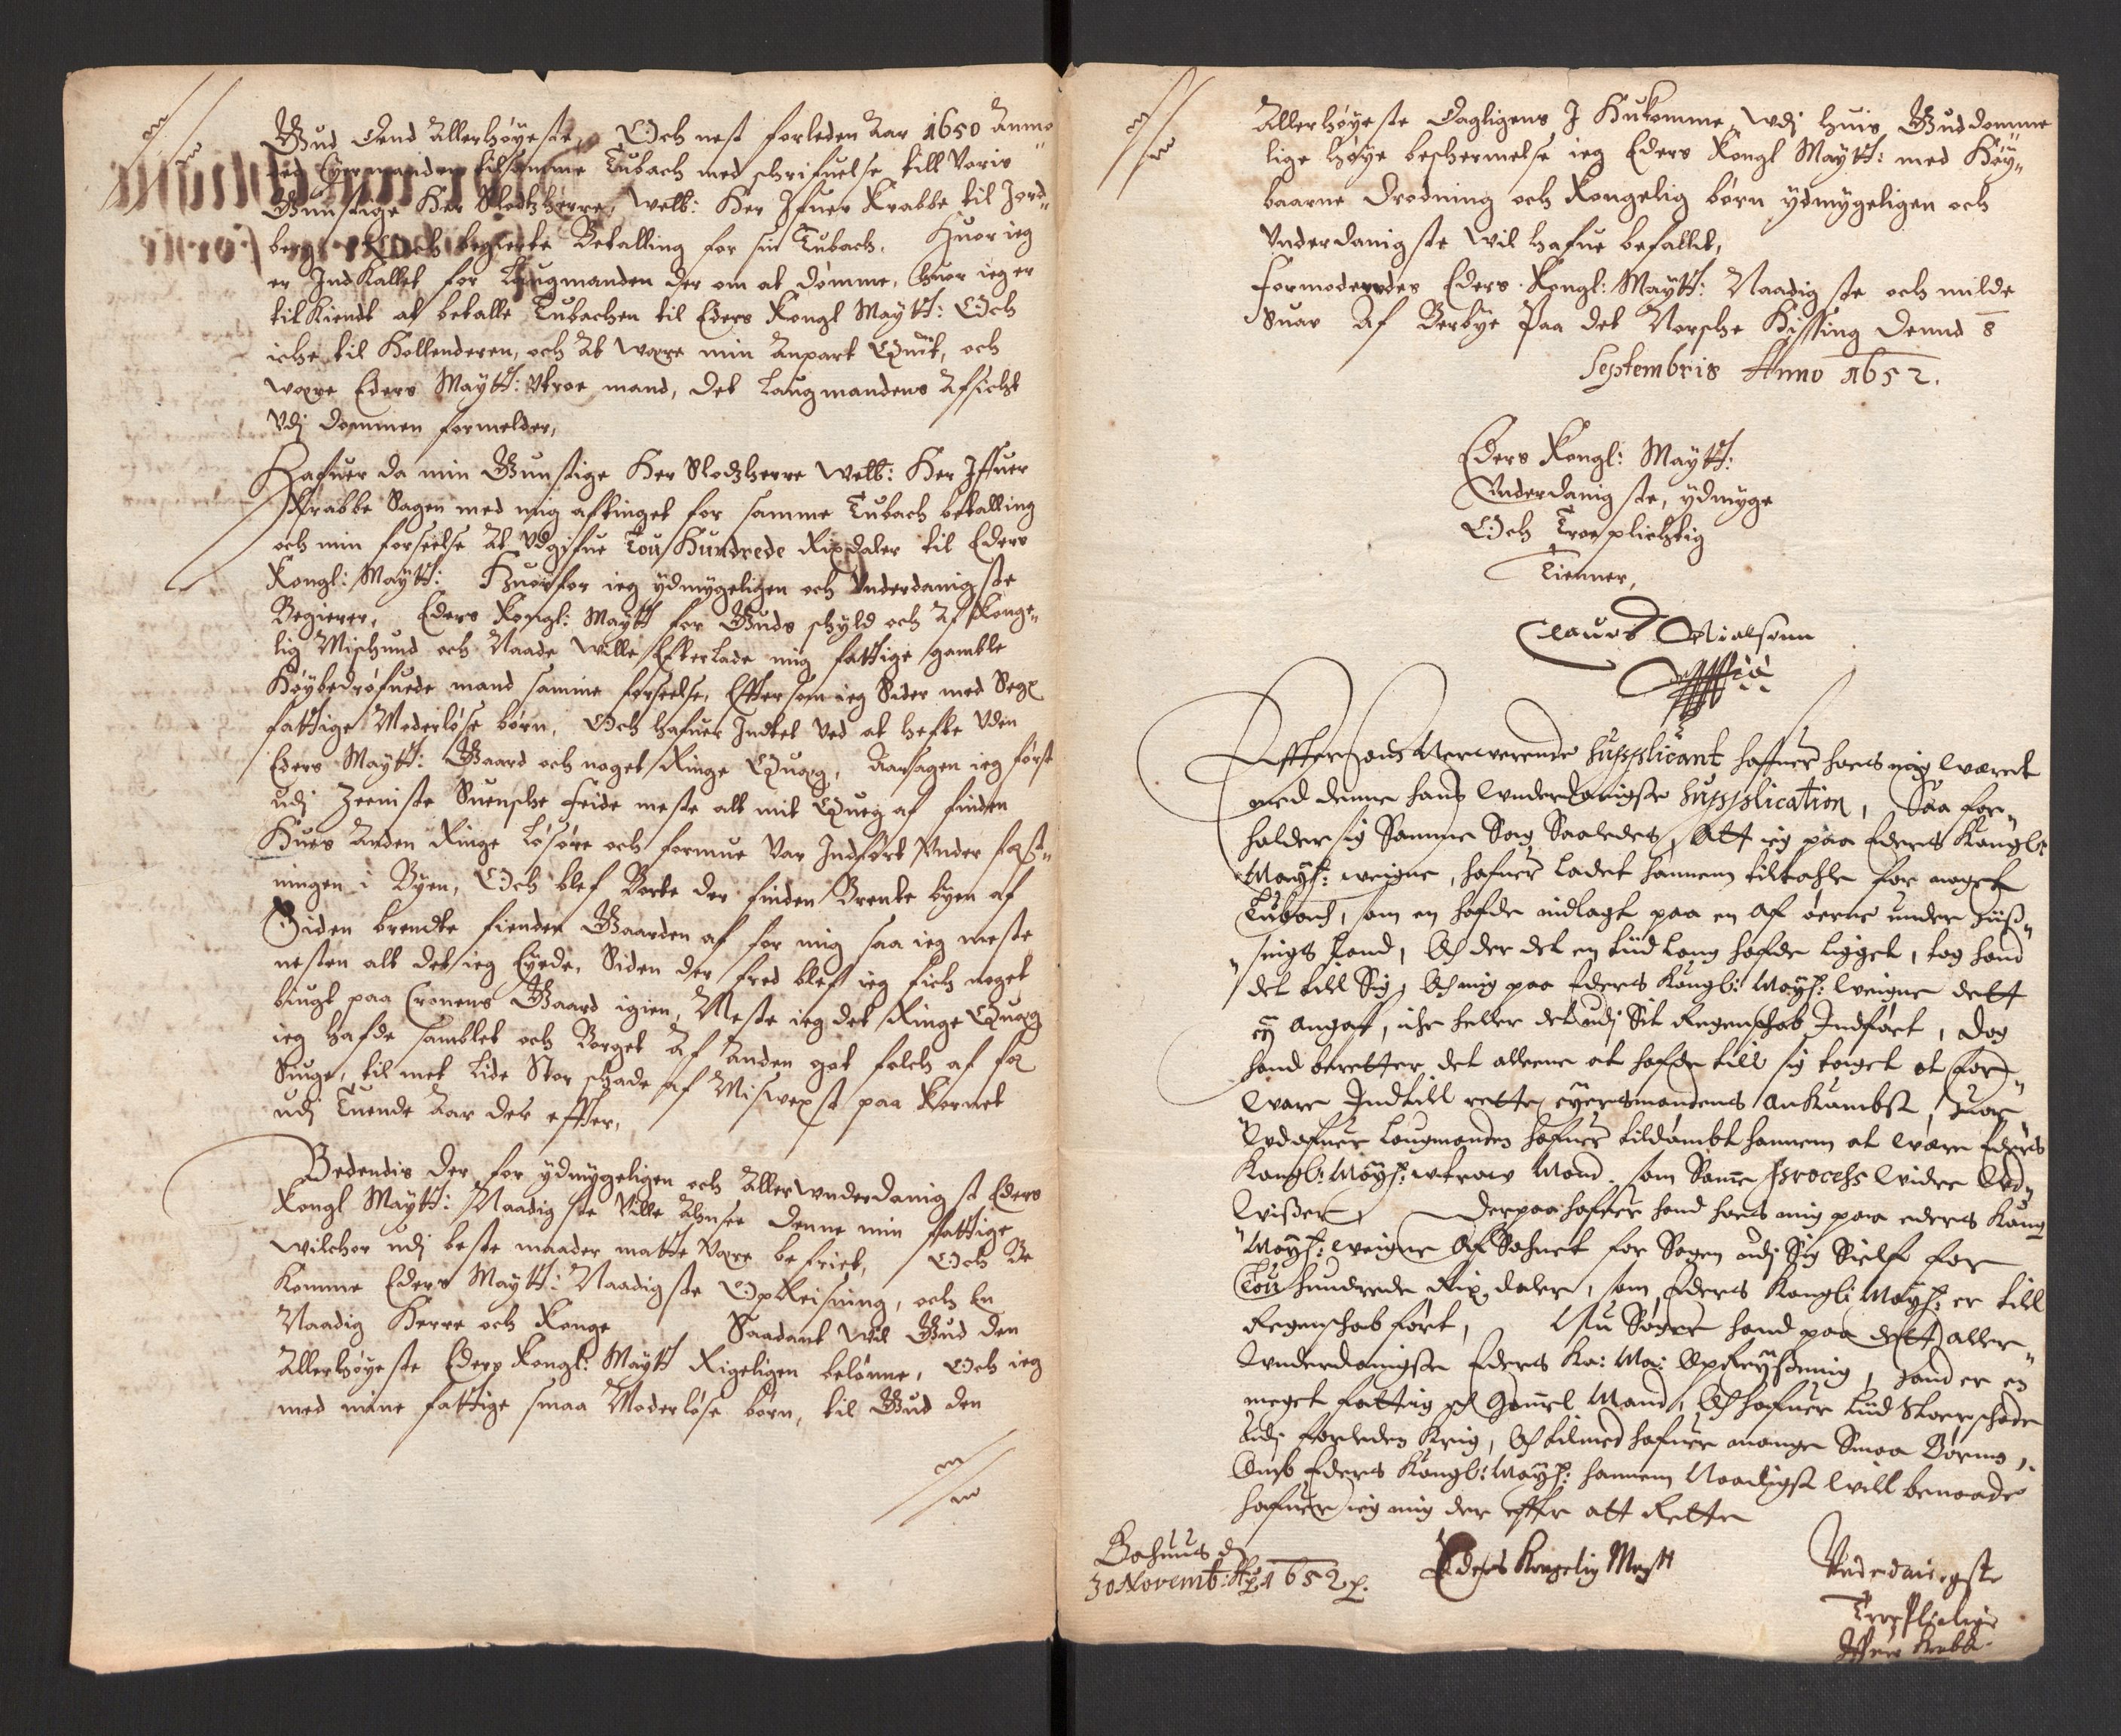 Gud dend Allerhöyeste, Och nest forleden Aar 1650 Anmo
ded Eyermanden tilsamme Tubach med schrifuelse till Voris
Gunstige Her Slodzherre, Welb: Her Ifuer Krabbe til Jord„
berg och begierte Betalling for sin Tubach. Huor ieg
er Ind Kallet for Laugmanden der om at dömme, Huor ieg er
til Kiendt at betalle Tubachen til Eders Kongl Maytt: Och
iche til Hollenderen, och At were min Anpart Quit, och
were Eders Maytt: Vtroe mand, det Laugmandens Afsicht
Vdj dommen formelder,
Hafuer da min Gunstige Her Slodzherre Welb: Her Iffuer
Krabbe Sagen med mig aftinget for samme Tubach betalling
och min forseelse At Vdgifue Tou Hundrede Rixdaler til Eders
Kongl: Maytt: Huorfor ieg ydmygeligen och Vnderdanigste
Begierer, Eders Kongl: Maytt for Guds schyld och Af Konge„
lig Mischund och Naade Wille Efterlade mig fattige gamble
Höybedröfuede mand samme forseelse, Effter som ieg Sider med Sex
fattige Moderlöse börn, Och hafuer Indtet Ved at hefte Vden
Eders Maytt: Gaard och noget Ringe Queg, Aarsagen ieg först
udj Seeniste Suensche feide meste alt mit Queg af finden
Hues Anden Ringe Lösöre och formue Var Indfört Vnder fest„
ningen i Byen, Och blef Borte der finden Brente byen af
Siden brendte fienden Gaarden af for mig saa ieg meste
nesten alt det ieg Eyede. Siden der fred blef ieg fich noget
bingt paa Cronens Gaard igien, Meste ieg det Ringe Queg
ieg hafde samblet och Borget Af Anden got folch af fæ
Siuge, til met Lide Stor schade af Misvext paa Kornet
udj Tuende Aar der effter,
Bedendis der for ydmygeligen och Aller Wnderdanigst Eders
Kongl Maytt: Naadigste Ville Ansee denne min fattige
Wilchor udj beste maader motte Vere befriet, Och Be
komme Eders Maytt: Naadigste Opreisning, och En
Naadig Herre och Konge Saadant Wil Gud den
Allerhöyeste Eders Kongl: Maytt Rigeligen belönne, Och ieg
med mine fattige smaa Moderlöse börn, til Gud den
Allerhöyeste dagligens I Hukomme, Wdj huis Guddomme„
lige Höye beschermelse ieg Eders Kongl Maytt: med Höy„
baarne Drodning och Kongelig börn ydmygeligen och
Vnderdanigste Wil hafue befallet,
Formodendes Eders Kongl: Maytt: Naadigste och milde
Suar Af Berbye Paa det Norsche Hissing Dennd 8
Septembris Anno 1652.
Eders Kongl: Maytt:
Vnderdanigste, ydmyge
Och Troe plichtig
Tienner,
Clauos Nielsønn
Effterson Nerwerende Supplicant haffuer hoes mig wæret
med denne hans wnderdanigste Supplication, Saa for„
holder sig Samme Sag Saaledes, Att ieg paa Eders Kongl:
Maytt: weigne, hafuer ladet hannem tiltahle for noget
Tuback, som en hafde indlagt paa en Af öerne under Hiis„
„ings Land, Och der det en tiid lang hafde ligget, tog hand
det till Sig, Och mig paa Eders Kongl: Maytt: weigne dett
ey angaff, iche heller det udj Sit Regenschab Indfört, dog
hand beretter det alleene at hafde till sig taget at for„
ware Indtill rette eyersmandens Ankombst, Huor
udofuer Laugmanden hafuer tildömbt hannem at were Eders
Kongl: Maytt: wtroe Mand, som Samme Process widere wd„
wiser, Derpaa hafuer hand hoes mig paa eders Kong
Maytt: weigne Afsohnet for Sagen udj Sig Sielf for
Tou hundrede Rix daler, som Eders Kongl: Maytt: er till
Regenschab fört, Nu Söger hand paa dett aller„
wnderdanigste Eders Ko: Ma: Opreysning, Hand er en
meget fattig och Gammel Mand, Och hafuer liid Stoer schade
udj forleden Krig, Och tilmed hafuer mange Smaa Börn,
Omb Eders Kongl: Maytt: hannem Naadigst will benaade
hafuer ieg mig der effter att Rette
Bahuus d
30 Novemb: Ao 1652
Eders Kongelig Maytt
Vnderdanigste
Troepligtige
Iffuer Krabbe